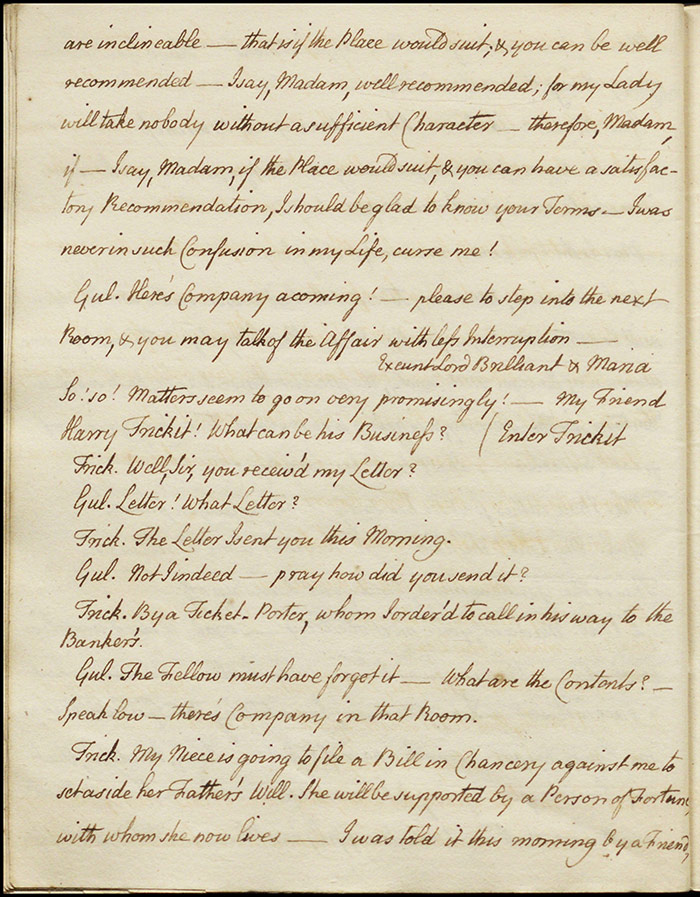 are inclineable — that is if the Place would suit, & you can be well
recommended — I say, Madam, well recommended; for my Lady
will take nobody without a sufficient Character — therefore, Madam,
if — I say, Madam, if the Place would suit, & you can have a satisfac-
tory Recommendation, I should be glad to know your Terms — I was
never in such Confusion in my Life, curse me!
Gul. Here's Company a coming! — please to step into the next
Room, & you may talk of the Affair with less Interruption —
Exeunt Lord Brilliant & Maria
So! so! Matters seem to go on very promisingly! — My Friend
Harry Trickit! What can be his Business? (Enter Trickit
Trick. Well, Sir, you receiv'd my Letter?
Gul. Letter! What Letter?
Trick. The Letter I sent you this Morning.
Gul. Not I indeed — pray how did you send it?
Trick. By a Ticket-Porter, whom I order'd to call in his way to the
Banker's.
Gul. The Fellow must have forgot it — What are the Contents? —
Speak low — there's Company in that Room.
Trick. My Niece is going to file a Bill in Chancery against me to
set aside her Father's Will. She will be supported by a Person of Fortune,
with whom she now lives — I was told it this morning by a Friend,